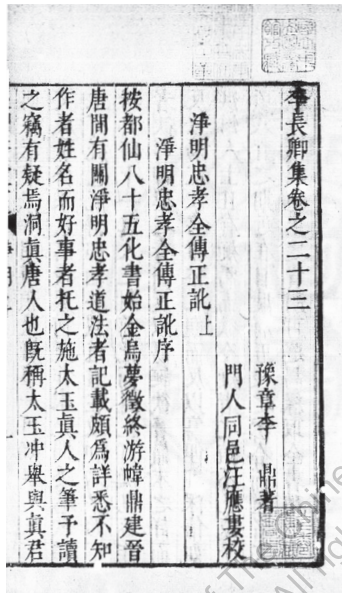 李長卿集卷之二十三
豫章李 鼎著
門人同邑汪應婁校
淨明忠孝全傳正訛上
淨明忠孝全傳正訛序
按都仙八十五化書始金烏夢徵終游幃鼎建晉
唐間有關淨明忠孝道法者記載頗爲詳悉不知
作者姓名而好事者托之施太玉眞人之筆予讀
之竊有疑焉洞眞唐人也旣稱太玉冲舉與眞君
of The Chine
All righ